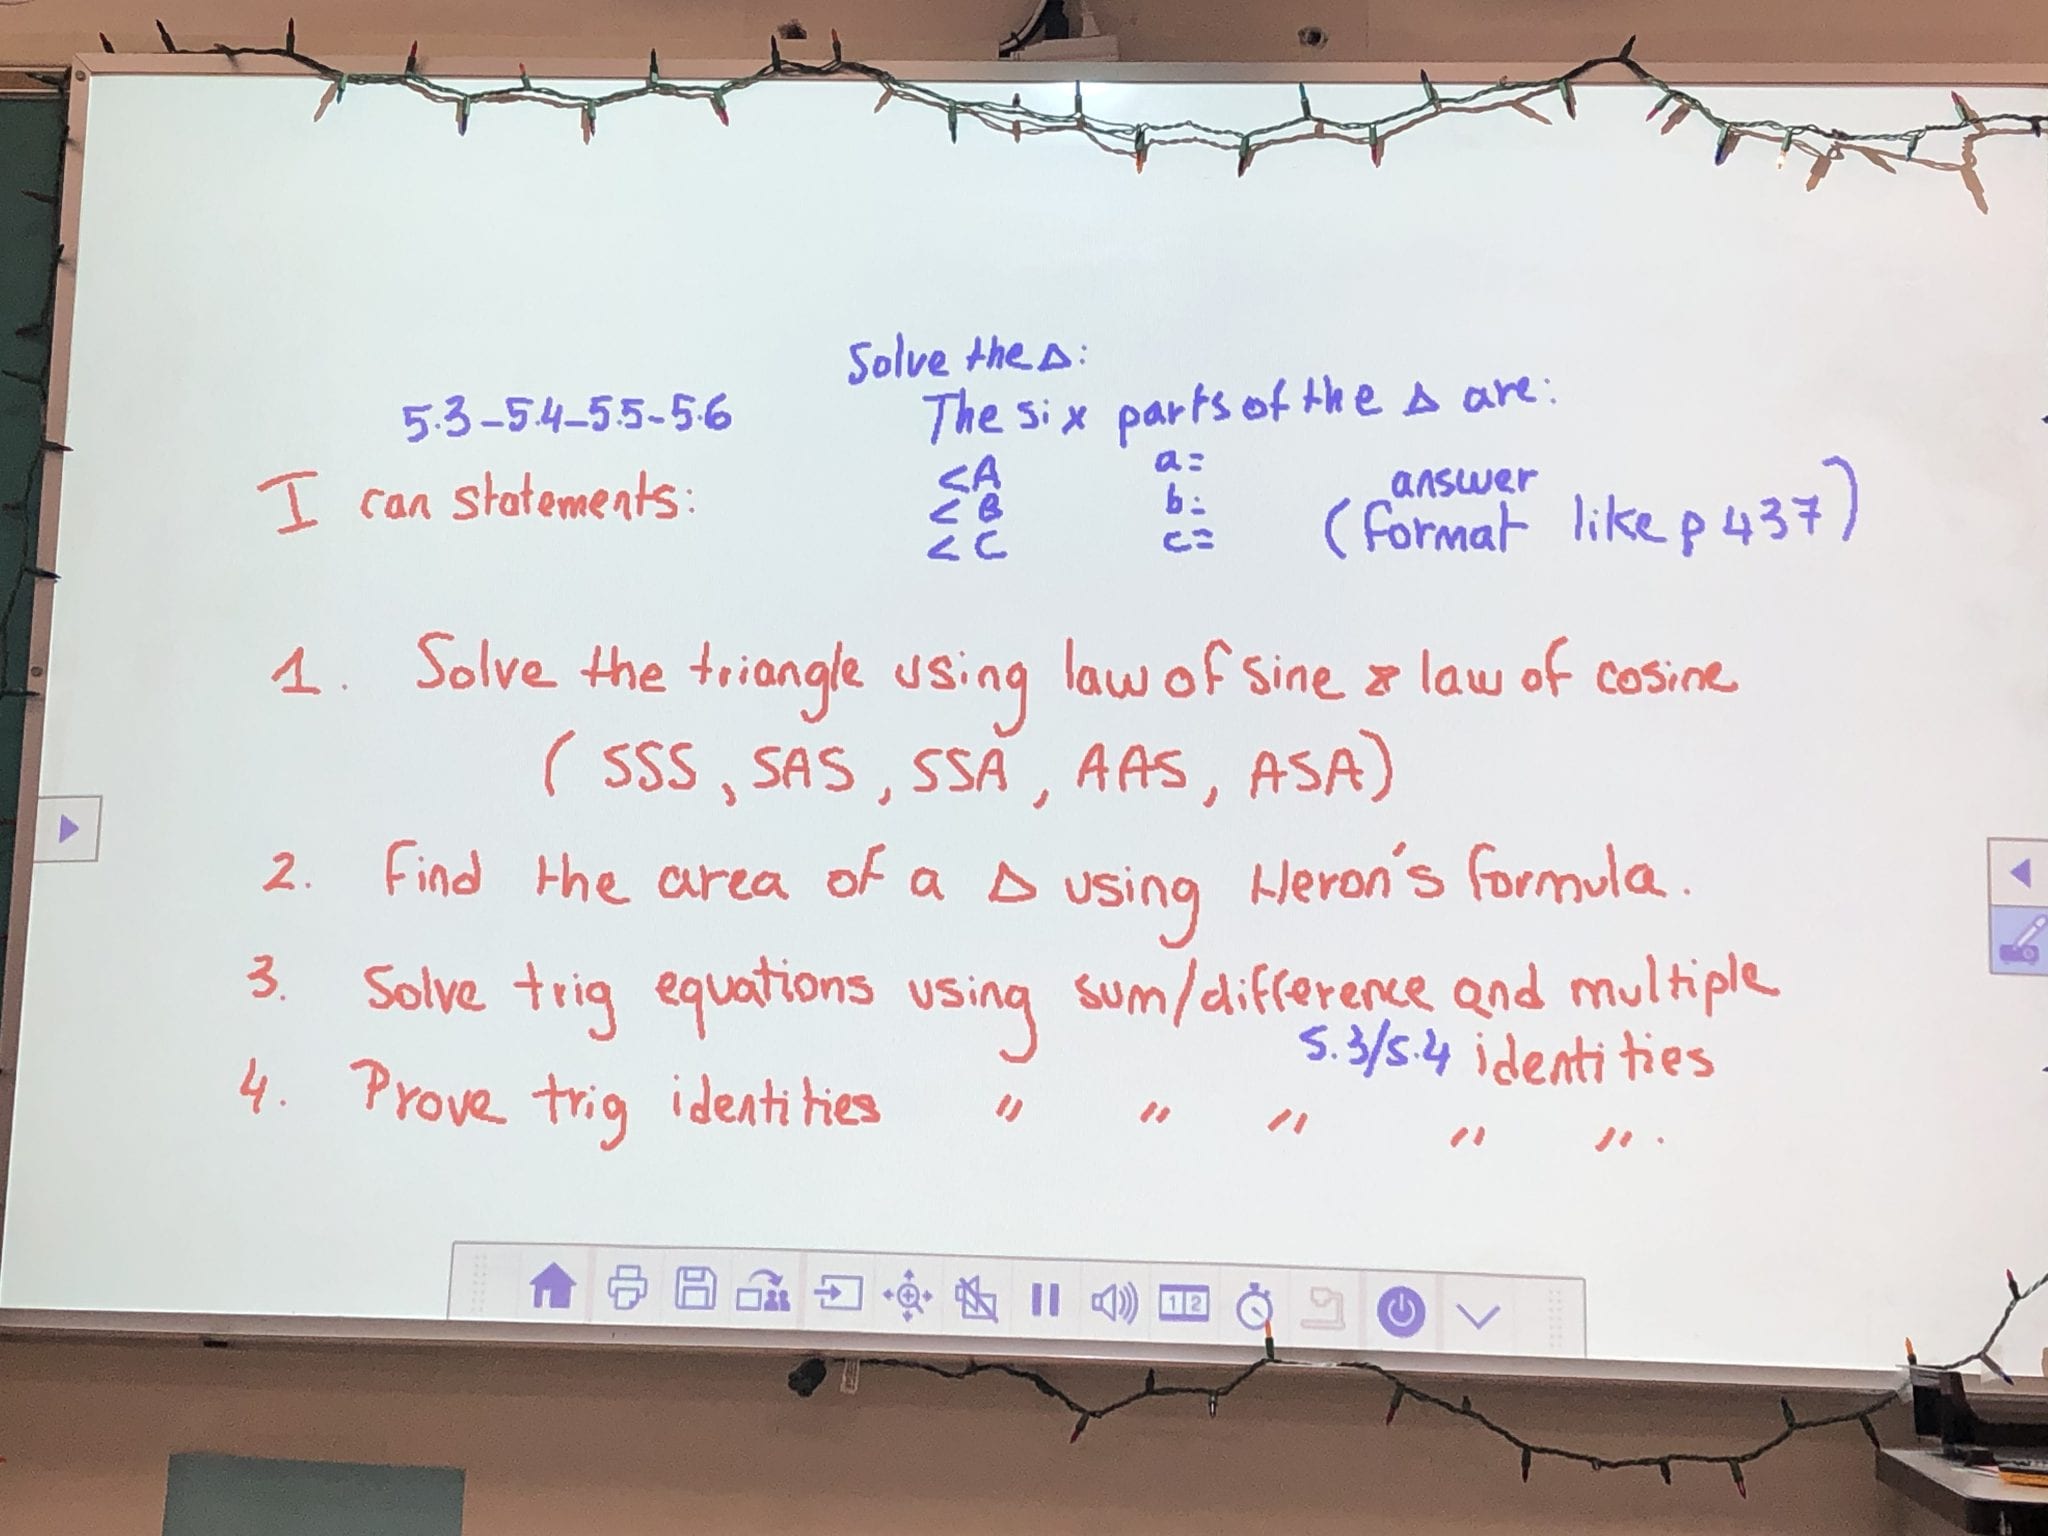 Solve the Δ:
5.3-5.4-5.5-5.6
The six parts of the Δ are:
<A a=
<B b=
<C c=
(answer format like p 437)
I can statements:
1. Solve the triangle using law of sine & law of cosine
(SSS, SAS, SSA, AAS, ASA)
2. Find the area of a Δ using Heron's formula.
3. Solve trig equations using sum/difference and multiple
5.3/5.4 identities
4. Prove trig identities " " " " ".
1 2